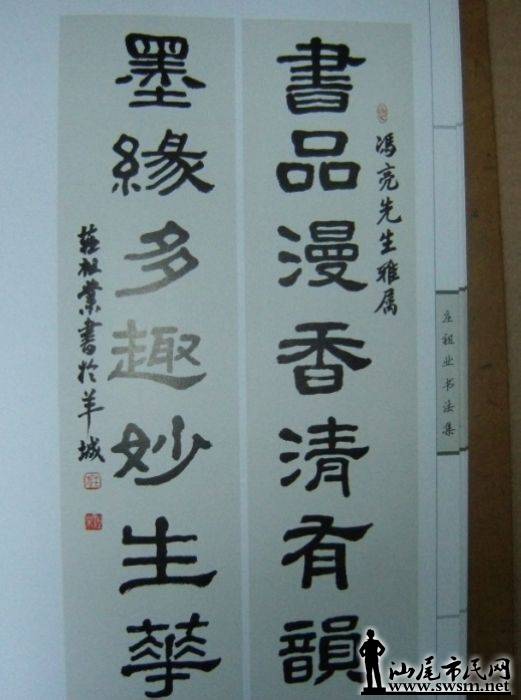 馮亮先生雅属
書品漫香清有韻
墨緣多趣妙生華
莊祖業書於羊城
庄祖业书法集
汕尾市民网
www.swsm.net